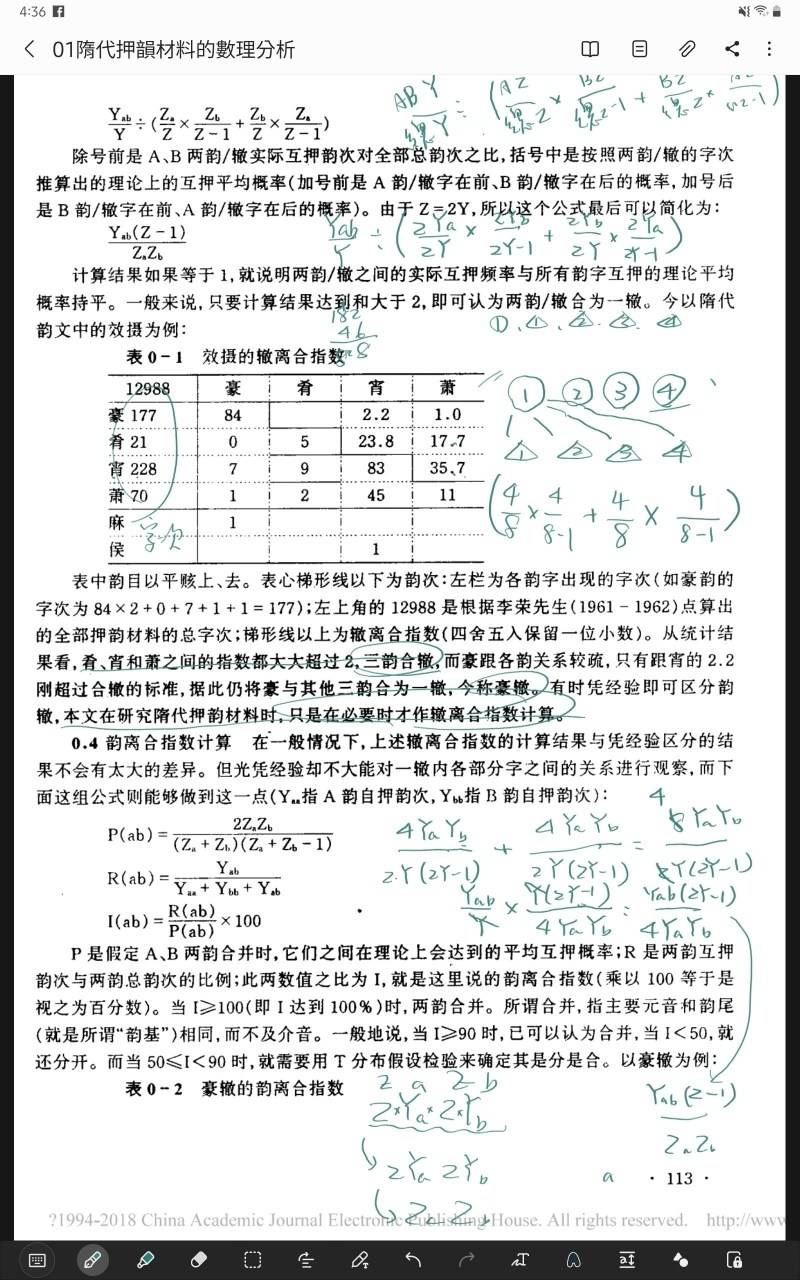 4:36
01隋代押韻材料的數理分析
Yab/Y ÷ (Za/Z × Zb/(Z-1) + Zb/Z × Za/(Z-1))
除号前是 A、B 两韵/辙实际互押韵次对全部总韵次之比,括号中是按照两韵/辙的字次
推算出的理论上的互押平均概率(加号前是 A 韵/辙字在前、B 韵/辙字在后的概率,加号后
是 B 韵/辙字在前、A 韵/辙字在后的概率)。由于 Z=2Y,所以这个公式最后可以简化为:
Yab(Z-1)/ZaZb
Yab/Y ÷ (2Ya/2Y × 2Yb/2Y-1 + 2Yb/2Y × 2Ya/2Y-1)
计算结果如果等于 1,就说明两韵/辙之间的实际互押频率与所有韵字互押的理论平均
概率持平。一般来说,只要计算结果达到和大于 2,即可认为两韵/辙合为一辙。今以隋代
韵文中的效摄为例:
182
46
表 0-1 效摄的辙离合指数
12988 豪 肴 宵 萧
豪 177 84 2.2 1.0
肴 21 0 5 23.8 17.7
宵 228 7 9 83 35.7
萧 70 1 2 45 11
麻 1
侯 1
字次
① ② ③ ④
(4/8 × 4/8-1 + 4/8 × 4/8-1)
表中韵目以平赅上、去。表心梯形线以下为韵次:左栏为各韵字出现的字次(如豪韵的
字次为 84×2+0+7+1+1=177);左上角的 12988 是根据李荣先生(1961-1962)点算出
的全部押韵材料的总字次;梯形线以上为辙离合指数(四舍五入保留一位小数)。从统计结
果看,肴、宵和萧之间的指数都大大超过 2,三韵合辙,而豪跟各韵关系较疏,只有跟宵的 2.2
刚超过合辙的标准,据此仍将豪与其他三韵合为一辙,今称豪辙。有时凭经验即可区分韵
辙,本文在研究隋代押韵材料时,只是在必要时才作辙离合指数计算。
0.4 韵离合指数计算 在一般情况下,上述辙离合指数的计算结果与凭经验区分的结
果不会有太大的差异。但光凭经验却不大能对一辙内各部分字之间的关系进行观察,而下
面这组公式则能够做到这一点(Yaa指 A 韵自押韵次,Ybb指 B 韵自押韵次):
P(ab)=2ZaZb/(Za+Zb)(Za+Zb-1)
4YaYb/2Y(2Y-1) + 4YaYb/2Y(2Y-1) = 8YaYb/2Y(2Y-1)
R(ab)=Yab/(Yaa+Ybb+Yab)
Yab/Y × Y(2Y-1)/4YaYb = Yab(2Y-1)/4YaYb
I(ab)=R(ab)/P(ab)×100
P 是假定 A、B 两韵合并时,它们之间在理论上会达到的平均互押概率;R 是两韵互押
韵次与两韵总韵次的比例;此两数值之比为 I,就是这里说的韵离合指数(乘以 100 等于是
视之为百分数)。当 I≥100(即 I 达到 100%)时,两韵合并。所谓合并,指主要元音和韵尾
(就是所谓“韵基”)相同,而不及介音。一般地说,当 I≥90 时,已可以认为合并,当 I<50,就
还分开。而当 50≤I<90 时,就需要用 T 分布假设检验来确定其是分是合。以豪辙为例:
表 0-2 豪辙的韵离合指数
Z a Z b
2×Ya×2×Yb
2Ya 2Yb
Yab(Z-1)
ZaZb
a
· 113 ·
?1994-2018 China Academic Journal Electronic Publishing House. All rights reserved. http://www